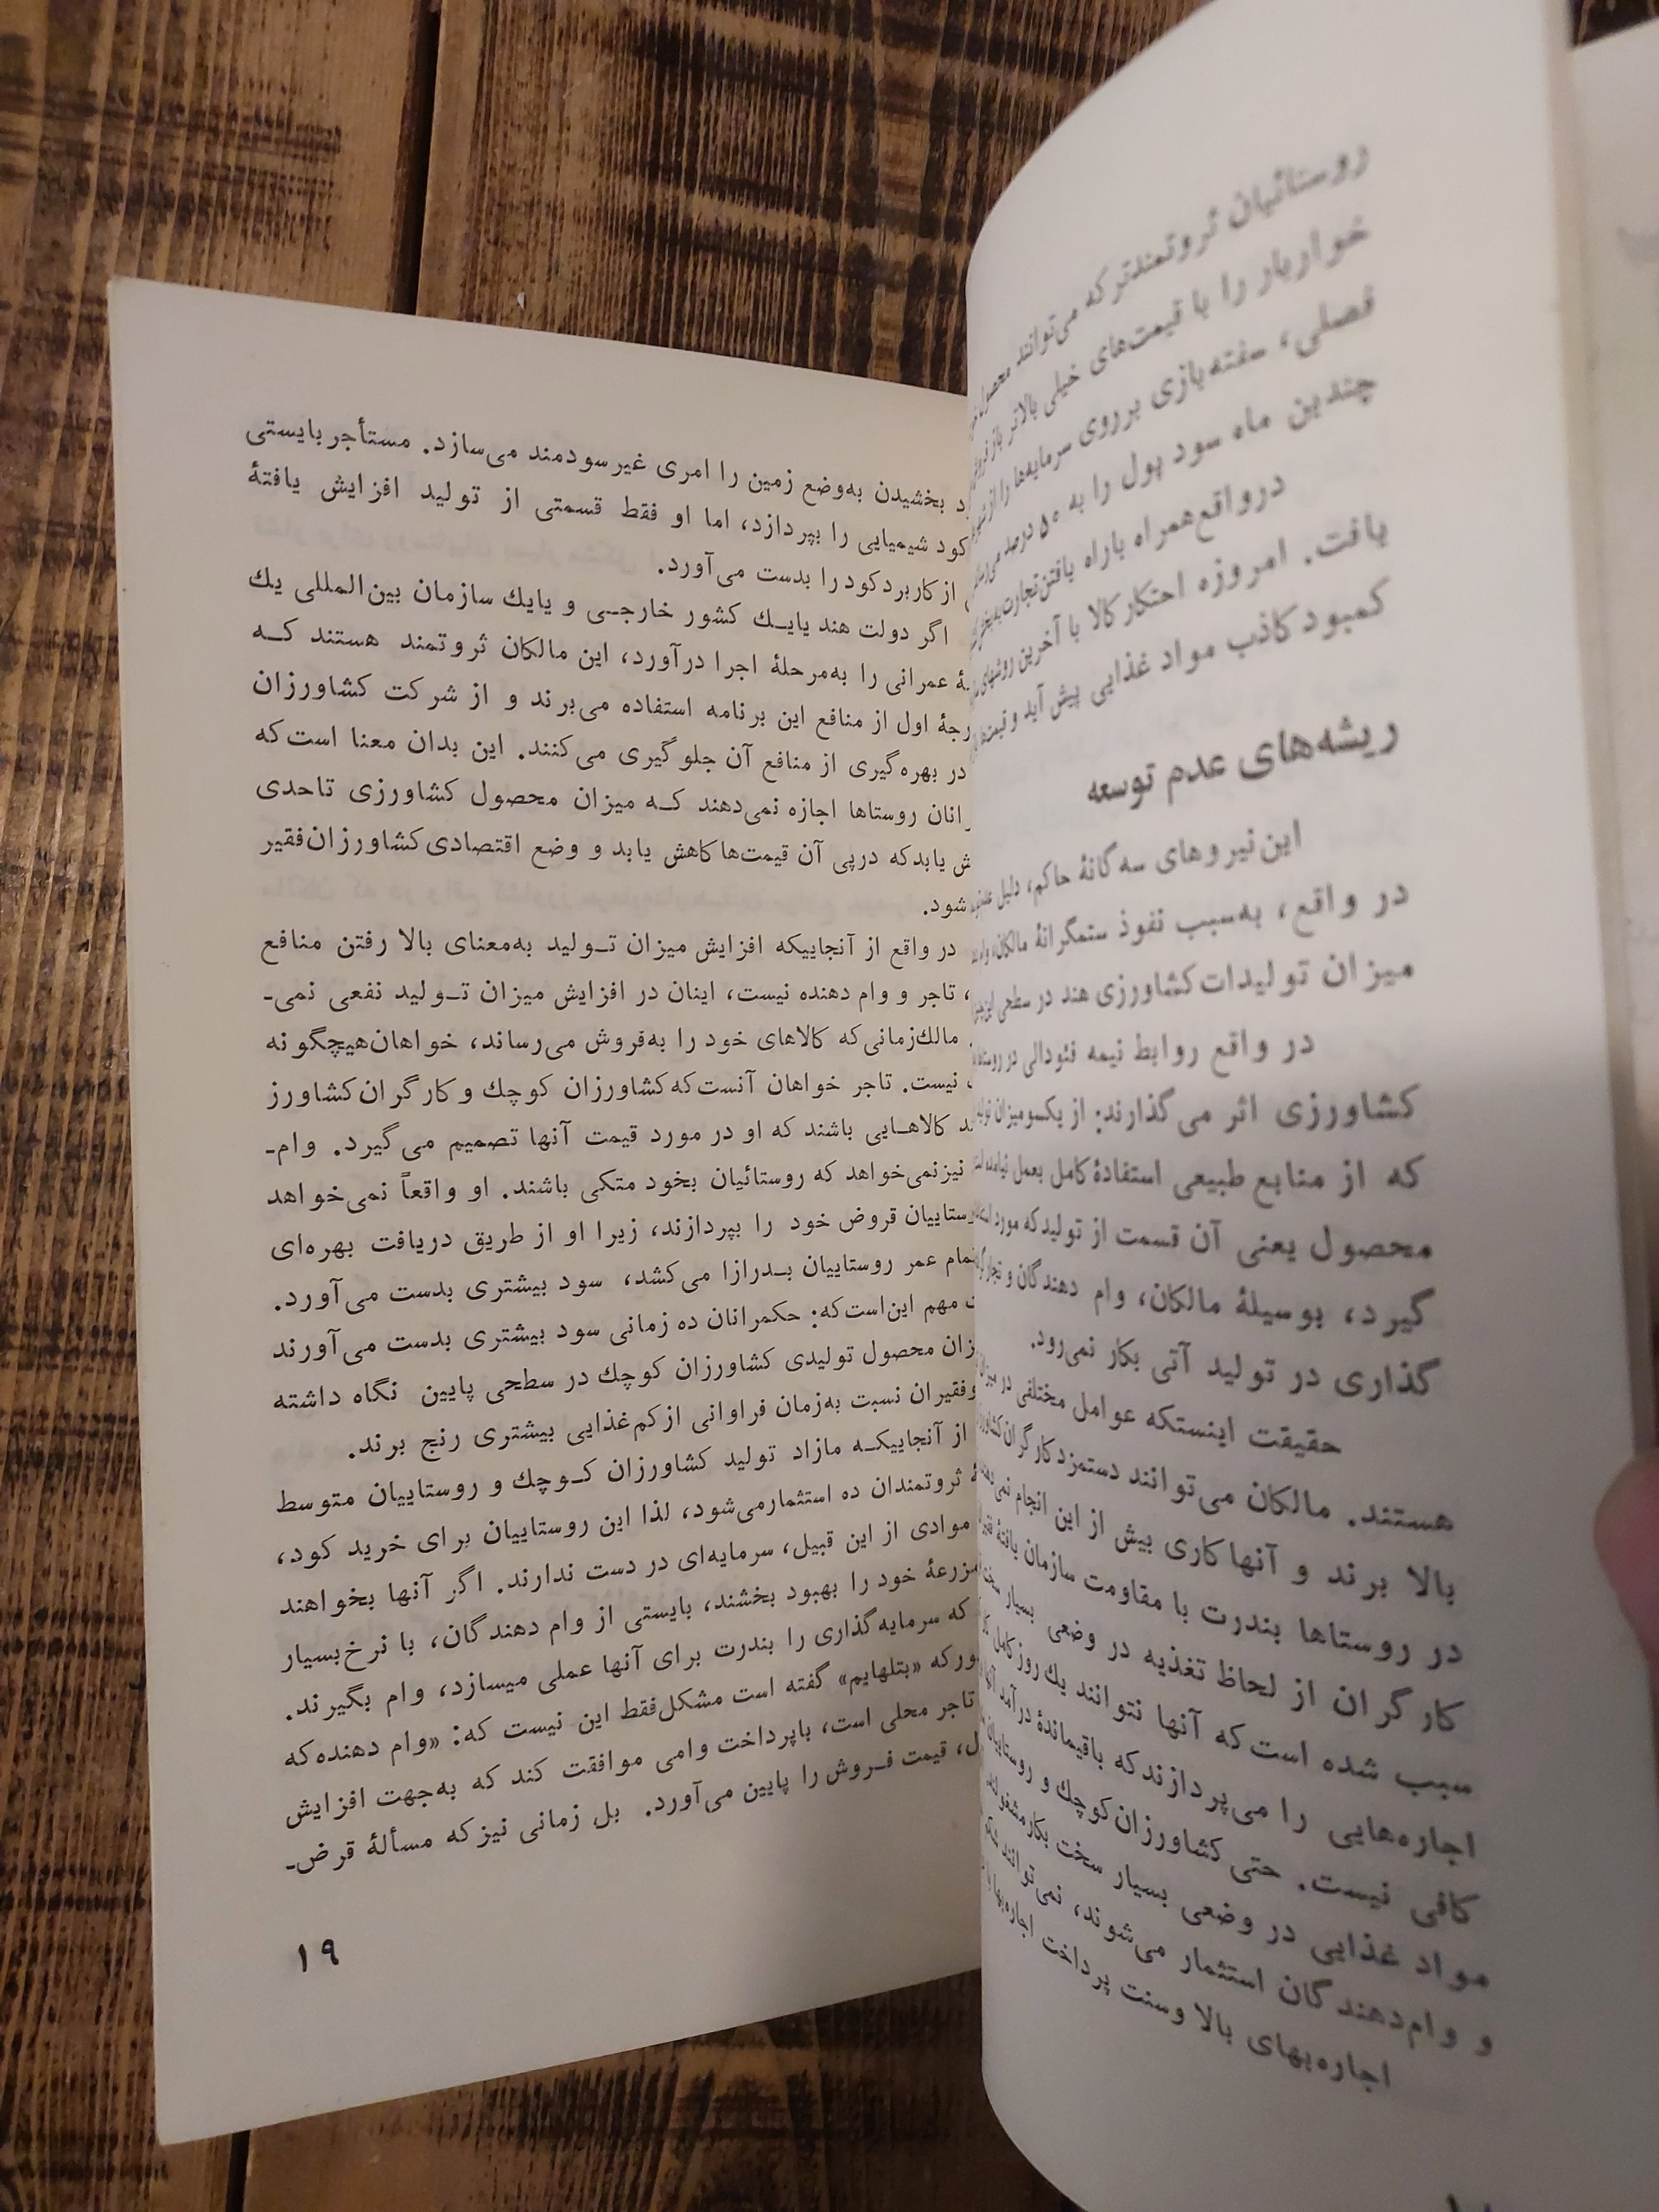 روستائیان ثروتمندتر که می‌توانند محصول
خواربار را با قیمت‌های خیلی بالاتر باز
فصلی، سفته‌بازی بر روی سرمایه‌ها را از
چندین ماه سود پول را به ۵۰ درصد می‌رساند
درواقع همراه باراه یافتن تجارت به
یافت. امروزه احتکار کالا با آخرین روشهای
کمبود کاذب مواد غذایی پیش آید و قیمت‌ها
ریشه‌های عدم توسعه
این نیروهای سه گانهٔ حاکم، دلیل
در واقع، به‌سبب نفوذ ستمگرانهٔ مالکان، وام
میزان تولیدات کشاورزی هند در سطحی
در واقع روابط نیمه فئودالی در
کشاورزی اثر می‌گذارند: از یکسو میزان
که از منابع طبیعی استفادهٔ کامل بعمل نیامده
محصول یعنی آن قسمت از تولید که مورد
گیرد، بوسیلهٔ مالکان، وام دهندگان و تجار
گذاری در تولید آتی بکار نمی‌رود.
حقیقت اینستکه عوامل مختلفی در
هستند. مالکان می‌توانند دستمزد کارگران
بالا برند و آنها کاری بیش از این انجام
در روستاها بندرت با مقاومت سازمان یافتهٔ
کارگران از لحاظ تغذیه در وضعی بسیار
سبب شده است که آنها نتوانند یك روز کامل
اجاره‌هایی را می‌پردازند که باقیماندهٔ درآمد
کافی نیست. حتی کشاورزان کوچك و روستاییان
مواد غذایی در وضعی بسیار سخت بکار مشغولند
و وام‌دهندگان استثمار می‌شوند، نمی‌توانند
اجاره‌بهای بالا وسنت پرداخت
بخشیدن به‌وضع زمین را امری غیرسودمند می‌سازد. مستأجر بایستی
کود شیمیایی را بپردازد، اما او فقط قسمتی از تولید افزایش یافتهٔ
از کاربرد کود را بدست می‌آورد.
اگر دولت هند یایـك کشور خارجـی و یایك سازمان بین‌المللی یك
عمرانی را به‌مرحلهٔ اجرا درآورد، این مالکان ثروتمند هستند کـه
اول از منافع این برنامه استفاده می‌برند و از شرکت کشاورزان
در بهره‌گیری از منافع آن جلوگیری می‌کنند. این بدان معنا است که
روستاها اجازه نمی‌دهند کـه میزان محصول کشاورزی تاحدی
یابد که درپی آن قیمت‌ها کاهش یابد و وضع اقتصادی کشاورزان فقیر
شود.
در واقع از آنجاییکه افزایش میزان تـولید به‌معنای بالا رفتن منافع
، تاجر و وام دهنده نیست، اینان در افزایش میزان تـولید نفعی نمی‌ـ
مالك زمانی که کالاهای خود را به‌فروش می‌رساند، خواهان هیچگونه
نیست. تاجر خواهان آنست که کشاورزان کوچك و کارگران کشاورز
کالاهـایی باشند که او در مورد قیمت آنها تصمیم می‌گیرد. وام‌ـ
نیز نمی‌خواهد که روستائیان بخود متکی باشند. او واقعاً نمی‌خواهد
قروض خود را بپردازند، زیرا او از طریق دریافت بهره‌ای
عمر روستاییان بـدرازا می‌کشد، سود بیشتری بدست می‌آورد.
مهم این‌است که: حکمرانان ده زمانی سود بیشتری بدست می‌آورند
محصول تولیدی کشاورزان کوچك در سطحی پایین نگاه داشته
وفقیران نسبت به‌زمان فراوانی از کم‌غذایی بیشتری رنج برند.
از آنجاییکـه مازاد تولید کشاورزان کـوچك و روستاییان متوسط
ثروتمندان ده استثمار می‌شود، لذا این روستاییان برای خرید کود،
موادی از این قبیل، سرمایه‌ای در دست ندارند. اگر آنها بخواهند
خود را بهبود بخشند، بایستی از وام دهندگان، با نرخ بسیار
که سرمایه‌گذاری را بندرت برای آنها عملی میسازد، وام بگیرند.
«بتلهایم» گفته است مشکل فقط این نیست که: «وام دهنده که
تاجر محلی است، باپرداخت وامی موافقت کند که به‌جهت افزایش
، قیمت فـروش را پایین می‌آورد. بل زمانی نیز که مسألهٔ قرض‌ـ
۱۹